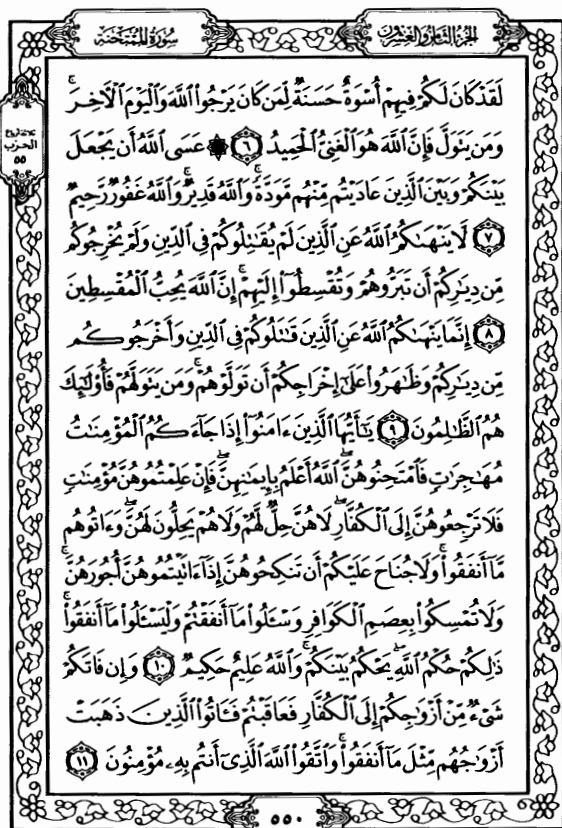 الجزء الثامن والعشرون
سورة الممتحنة
لَقَدْ كَانَ لَكُمْ فِيهِمْ أُسْوَةٌ حَسَنَةٌ لِّمَن كَانَ يَرْجُوا۟ ٱللَّهَ وَٱلْيَوْمَ ٱلْـَٔاخِرَ ۚ
وَمَن يَتَوَلَّ فَإِنَّ ٱللَّهَ هُوَ ٱلْغَنِىُّ ٱلْحَمِيدُ ٦ ۞ عَسَى ٱللَّهُ أَن يَجْعَلَ
بَيْنَكُمْ وَبَيْنَ ٱلَّذِينَ عَادَيْتُم مِّنْهُم مَّوَدَّةً ۚ وَٱللَّهُ قَدِيرٌ ۚ وَٱللَّهُ غَفُورٌ رَّحِيمٌ
٧ لَّا يَنْهَىٰكُمُ ٱللَّهُ عَنِ ٱلَّذِينَ لَمْ يُقَـٰتِلُوكُمْ فِى ٱلدِّينِ وَلَمْ يُخْرِجُوكُم
مِّن دِيَـٰرِكُمْ أَن تَبَرُّوهُمْ وَتُقْسِطُوٓا۟ إِلَيْهِمْ ۚ إِنَّ ٱللَّهَ يُحِبُّ ٱلْمُقْسِطِينَ
٨ إِنَّمَا يَنْهَىٰكُمُ ٱللَّهُ عَنِ ٱلَّذِينَ قَـٰتَلُوكُمْ فِى ٱلدِّينِ وَأَخْرَجُوكُم
مِّن دِيَـٰرِكُمْ وَظَـٰهَرُوا۟ عَلَىٰٓ إِخْرَاجِكُمْ أَن تَوَلَّوْهُمْ ۚ وَمَن يَتَوَلَّهُمْ فَأُو۟لَـٰٓئِكَ
هُمُ ٱلظَّـٰلِمُونَ ٩ يَـٰٓأَيُّهَا ٱلَّذِينَ ءَامَنُوٓا۟ إِذَا جَآءَكُمُ ٱلْمُؤْمِنَـٰتُ
مُهَـٰجِرَٰتٍ فَٱمْتَحِنُوهُنَّ ۖ ٱللَّهُ أَعْلَمُ بِإِيمَـٰنِهِنَّ ۖ فَإِنْ عَلِمْتُمُوهُنَّ مُؤْمِنَـٰتٍ
فَلَا تَرْجِعُوهُنَّ إِلَى ٱلْكُفَّارِ ۖ لَا هُنَّ حِلٌّ لَّهُمْ وَلَا هُمْ يَحِلُّونَ لَهُنَّ ۖ وَءَاتُوهُم
مَّآ أَنفَقُوا۟ ۚ وَلَا جُنَاحَ عَلَيْكُمْ أَن تَنكِحُوهُنَّ إِذَآ ءَاتَيْتُمُوهُنَّ أُجُورَهُنَّ ۚ
وَلَا تُمْسِكُوا۟ بِعِصَمِ ٱلْكَوَافِرِ وَسْـَٔلُوا۟ مَآ أَنفَقْتُمْ وَلْيَسْـَٔلُوا۟ مَآ أَنفَقُوا۟ ۚ
ذَٰلِكُمْ حُكْمُ ٱللَّهِ ۖ يَحْكُمُ بَيْنَكُمْ ۚ وَٱللَّهُ عَلِيمٌ حَكِيمٌ ١٠ وَإِن فَاتَكُمْ
شَىْءٌ مِّنْ أَزْوَٰجِكُمْ إِلَى ٱلْكُفَّارِ فَعَاقَبْتُمْ فَـَٔاتُوا۟ ٱلَّذِينَ ذَهَبَتْ
أَزْوَٰجُهُم مِّثْلَ مَآ أَنفَقُوا۟ ۚ وَٱتَّقُوا۟ ٱللَّهَ ٱلَّذِىٓ أَنتُم بِهِۦ مُؤْمِنُونَ ١١
الحزب
٥٥
٥٥٠